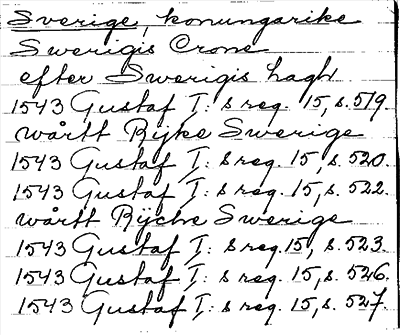 Sverige, konungarike
Swerigis Crone
efter Swerigis lagh
1543 Gustaf I: s reg. 15, s. 519.
wårtt Rijke Swerige
1543 Gustaf I: s reg. 15, s. 520.
1543 Gustaf I: s reg. 15, s. 522.
wårtt Rijche Swerige
1543 Gustaf I: s reg. 15, s. 523.
1543 Gustaf I: s reg. 15, s. 526.
1543 Gustaf I: s reg. 15, s. 527.